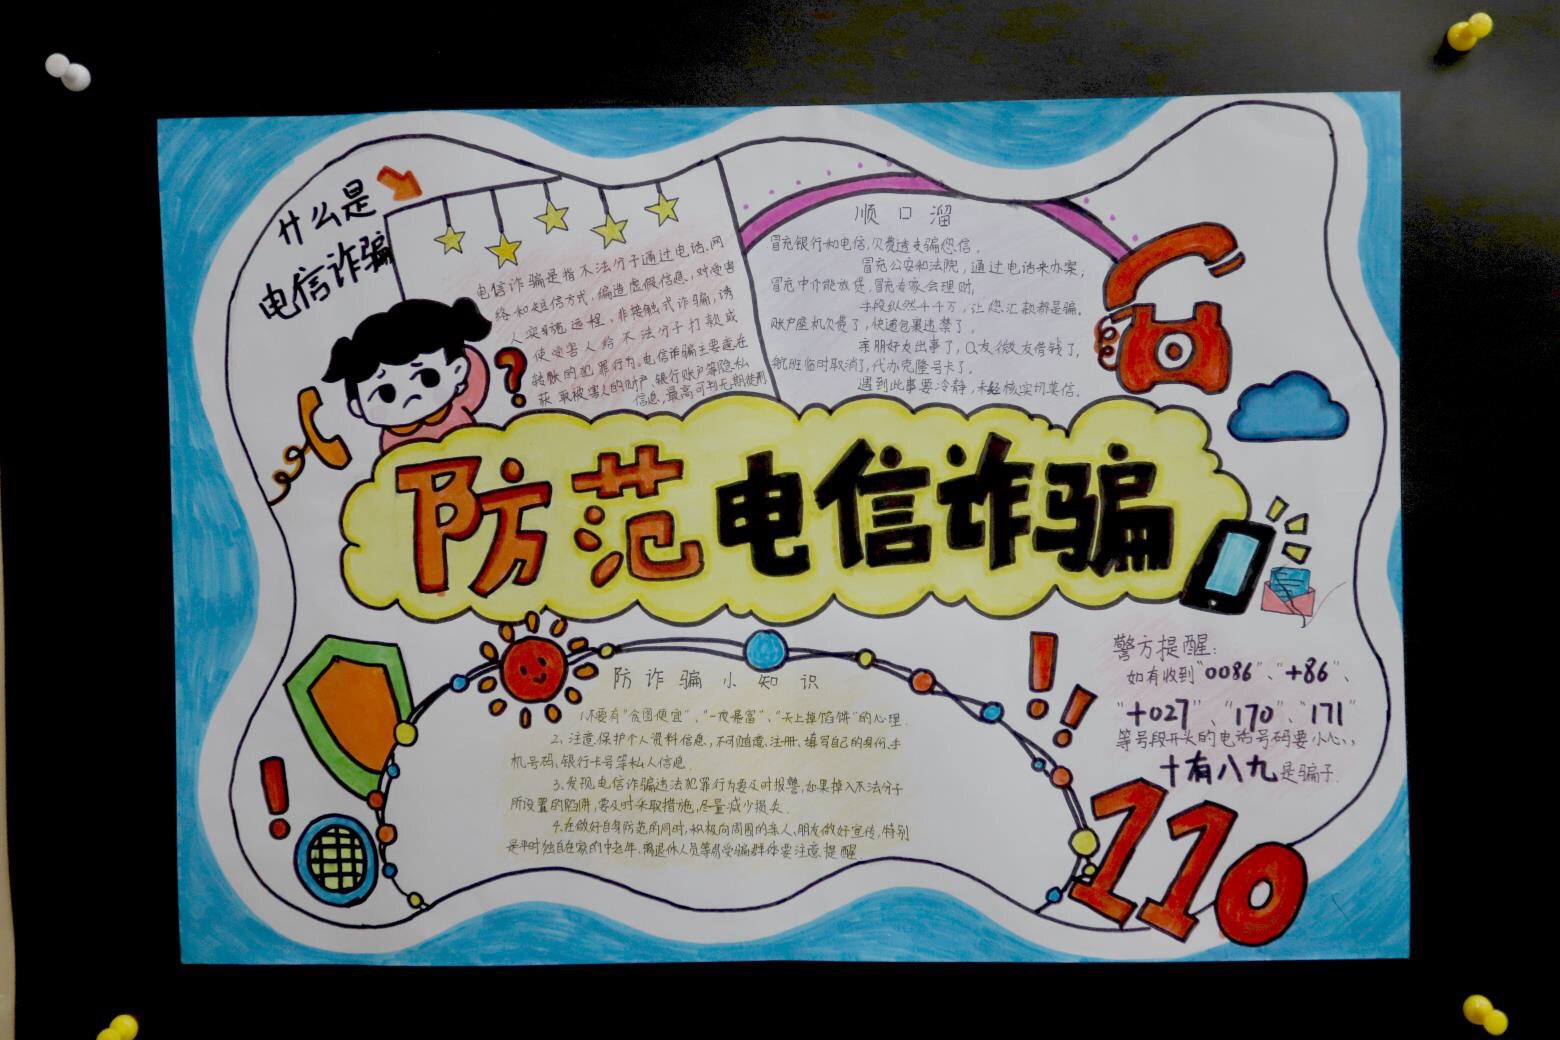 什么是
电信诈骗
电信诈骗是指不法分子通过电话、网
络和短信方式，编造虚假信息，对受害
人实施远程、非接触式诈骗，诱
使受害人给不法分子打款或
转账的犯罪行为。电信诈骗主要意在
获取被害人的财产、银行账户等隐私
信息，最高可判无期徒刑
顺口溜
冒充银行和电信，欠费透支骗您信。
冒充公安和法院，通过电话来办案，
冒充中介能放贷，冒充专家会理财，
手段纵然千千万，让您汇款都是骗。
账户座机欠费了，快递包裹违禁了，
亲朋好友出事了，Q友微友借钱了，
航班临时取消了，代办克隆号卡了。
遇到此事要冷静，未经核实切莫信。
防范电信诈骗
防诈骗小知识
1.不要有“贪图便宜”、“一夜暴富”、“天上掉馅饼”的心理.
2、注意保护个人资料信息，不可随意、注册、填写自己的身份、手
机号码、银行卡号等私人信息.
3、发现电信诈骗违法犯罪行为要及时报警，如果掉入不法分子
所设置的陷阱，要及时采取措施，尽量减少损失.
4、在做好自身防范的同时，积极向周围的亲人、朋友做好宣传，特别
是平时独自在家的中老年、离退休人员等易受骗群体要注意提醒.
警方提醒：
如有收到“0086”、“+86”、
“+027”、“170”、“171”
等号段开头的电话号码要小心，
十有八九是骗子.
110